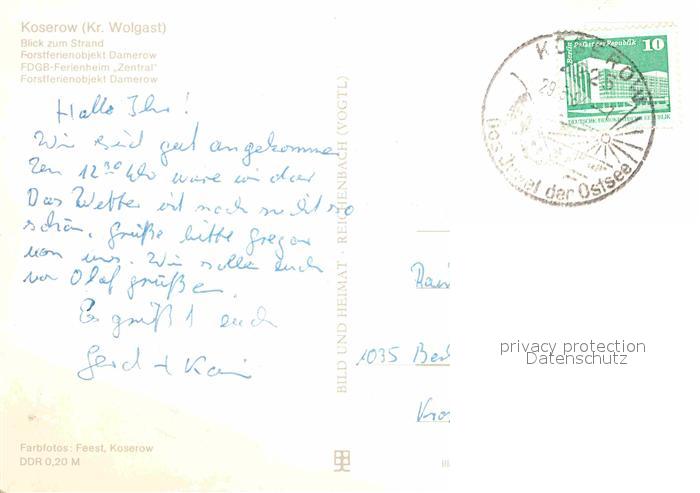 Koserow (Kr. Wolgast)
Blick zum Strand
Forstferienobjekt Damerow
FDGB-Ferienheim „Zentral"
Forstferienobjekt Damerow
Hallo Ihr!
Wir sind gut angekommen
12³⁰ Uhr waren wir da
Das Wetter ist noch nicht so
schön. Grüße bitte Gregor
von uns. Wir sollen euch
von Olaf grüßen.
Es grüßt euch
Gerd +
BILD UND HEIMAT · REICHENBACH (VOGTL)
Berlin Palast der Republik 10
DEUTSCHE DEMOKRATISCHE REPUBLIK
KOSEROW
2225
29
der Ostsee
1035 Ber
privacy protection
Datenschutz
Farbfotos: Feest, Koserow
DDR 0,20 M